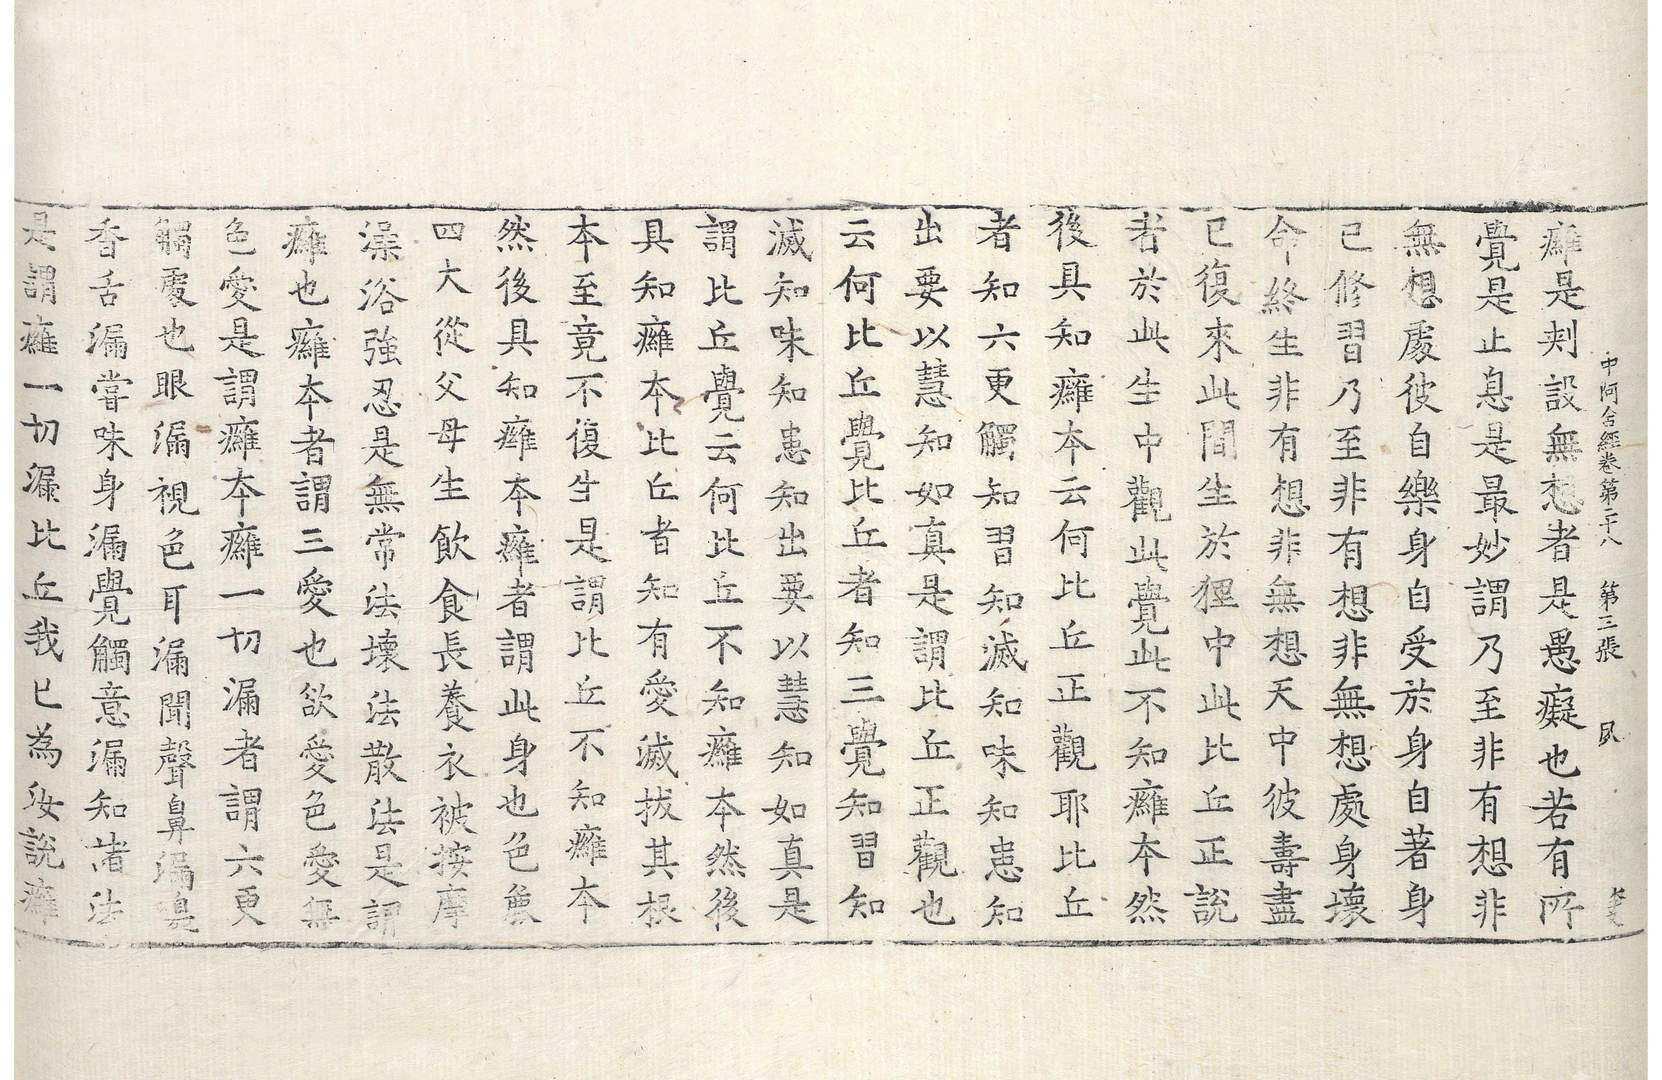 中阿含經卷第二十八　第三張　夙
癰是刺設無想者是愚癡也若有所
覺是止息是最妙謂乃至非有想非
無想處彼自樂身自受於身自著身
已修習乃至非有想非無想處身壞
命終生非有想非無想天中彼壽盡
已復來此間生於狸中此比丘正說
者於此生中觀此覺此不知癰本然
後具知癰本云何比丘正觀耶比丘
者知六更觸知習知滅知味知患知
出要以慧知如真是謂比丘正觀也
云何比丘覺比丘者知三覺知習知
滅知味知患知出要以慧知如真是
謂比丘覺云何比丘不知癰本然後
具知癰本比丘者知有愛滅拔其根
本至竟不復生是謂比丘不知癰本
然後具知癰本癰者謂此身也色麁
四大從父母生飲食長養衣被按摩
澡浴強忍是無常法壞法散法是謂
癰也癰本者謂三愛也欲愛色愛無
色愛是謂癰本癰一切漏者謂六更
觸處也眼漏視色耳漏聞聲鼻漏臭
香舌漏嘗味身漏覺觸意漏知諸法
是謂癰一切漏比丘我已為汝說癰